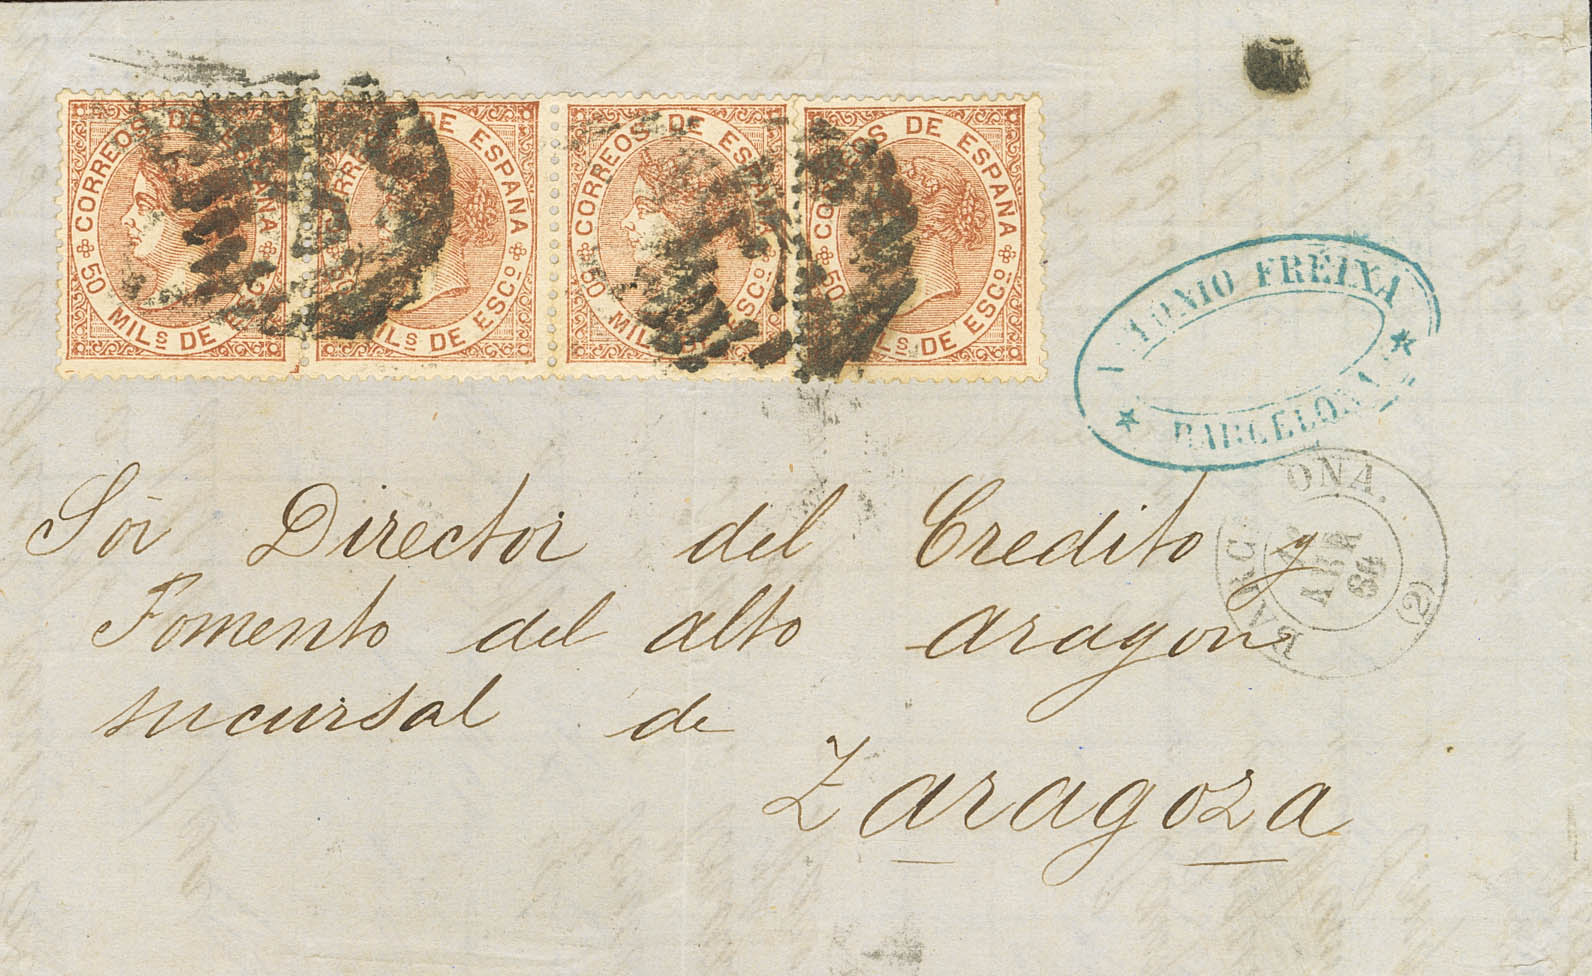 CORREOS DE ESPAÑA
50 MILS DE ESCO
CORREOS DE ESPAÑA
50 MILS DE ESCO
CORREOS DE ESPAÑA
50 MILS DE ESCO
CORREOS DE ESPAÑA
50 MILS DE ESCO
ANTONIO FREIXA
BARCELONA
BARCELONA.
ABR
(2)
Sor Director del Credito y
Fomento del alto aragon
sucursal de
Zaragoza